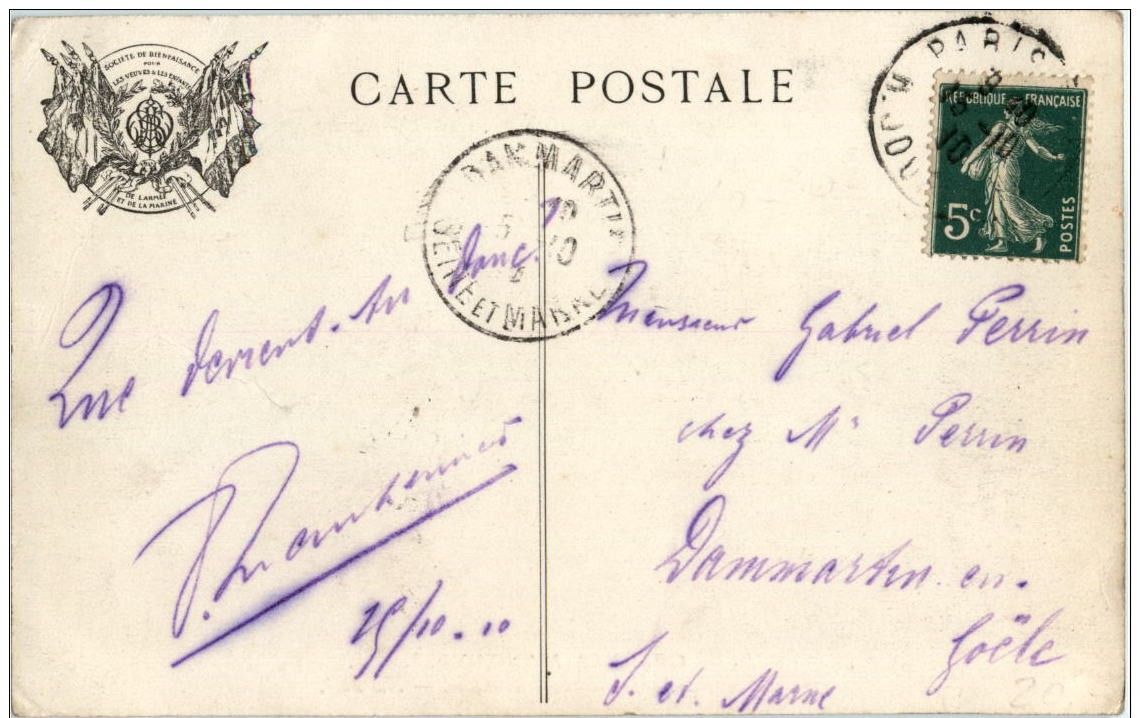 SOCIÉTÉ DE BIENFAISANCE
POUR
LES VEUVES & LES ENFANTS
DE L'ARMÉE
ET DE LA MARINE
CARTE POSTALE
PARIS
RÉPUBLIQUE FRANÇAISE
5c
POSTES
DAMMARTIN
SEINE ET MARNE
Que devient-tu donc?
25/10-10
Monsieur Gabriel Perrin
chez Mr Perrin
Dammartin-en-
Goële
S. et Marne